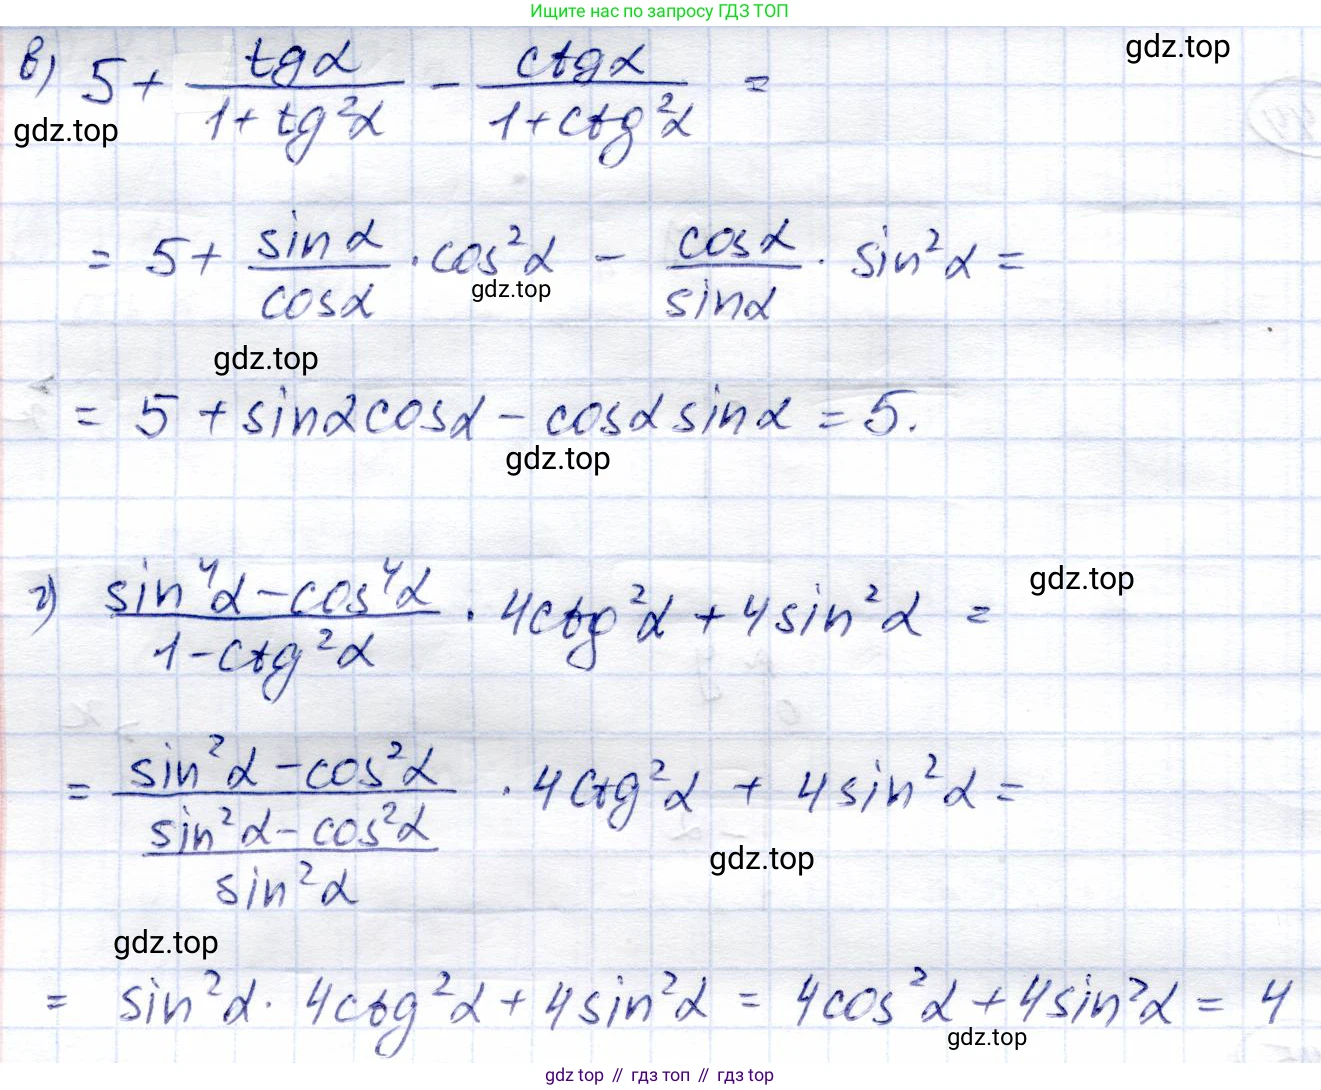 Ищите нас по запросу ГДЗ ТОП
gdz.top
в) 5 + tgα/(1+tg²α) − ctgα/(1+ctg²α) =
gdz.top
= 5 + sinα/cosα · cos²α − cosα/sinα · sin²α =
gdz.top
gdz.top
= 5 + sinαcosα − cosαsinα = 5.
gdz.top
г) (sin⁴α−cos⁴α)/(1−ctg²α) · 4ctg²α + 4sin²α =
gdz.top
= (sin²α−cos²α)/((sin²α−cos²α)/sin²α) · 4ctg²α + 4sin²α =
gdz.top
gdz.top
= sin²α · 4ctg²α + 4sin²α = 4cos²α + 4sin²α = 4
gdz.top
gdz top // гдз топ // гдз top